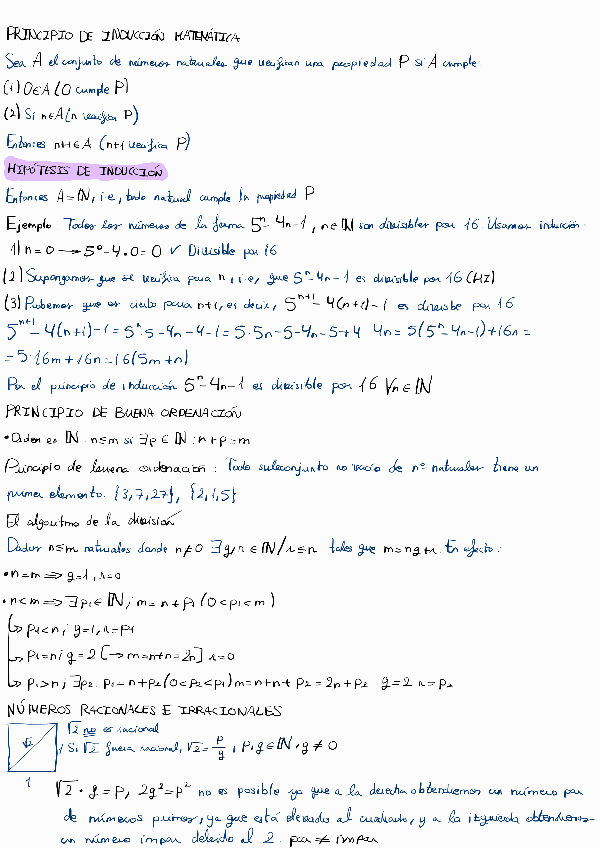 PRINCIPIO DE INDUCCIÓN MATEMÁTICA
Sea A el conjunto de números naturales que verifican una propiedad P si A cumple:
(1) 0∈A (0 cumple P)
(2) Si n∈A (n verifica P)
Entonces n+1∈A (n+1 verifica P)
HIPÓTESIS DE INDUCCIÓN
Entonces A=ℕ, i.e, todo natural cumple la propiedad P
Ejemplo Todos los números de la forma 5ⁿ-4n-1, n∈ℕ son divisibles por 16 Usamos inducción:
1) n=0 → 5⁰-4.0=0 ✓ Divisible por 16
(2) Supongamos que se verifica para n, i.e, que 5ⁿ-4n-1 es divisible por 16 (HI)
(3) Probemos que es cierto para n+1, es decir, 5ⁿ⁺¹-4(n+1)-1 es divisible por 16
5ⁿ⁺¹-4(n+1)-1=5ⁿ·5-4n-4-1=5·5n-5-4n-5+4 4n=5(5ⁿ-4n-1)+16n=
=5·16m+16n=16(5m+n)
Por el principio de inducción 5ⁿ-4n-1 es divisible por 16 ∀n∈ℕ
PRINCIPIO DE BUENA ORDENACIÓN
•Orden en ℕ: n≤m si ∃p∈ℕ: n+p=m
Principio de buena ordenación: Todo subconjunto no vacío de nº naturales tiene un
primer elemento. {3,7,27}, {2,1,5}
El algoritmo de la división
Dados n≤m naturales donde n≠0 ∃q,r∈ℕ/r≤n tales que m=nq+r. En efecto:
•n=m ⇒ q=1, r=0
•n<m ⇒ ∃p₁∈ℕ; m=n+p₁ (0<p₁<m)
↳ p₁<n; q=1, r=p₁
↳ p₁=n; q=2 [→m=n+n=2n] r=0
↳ p₁>n; ∃p₂: p₁=n+p₂ (0<p₂<p₁) m=n+n+p₂=2n+p₂ q=2 r=p₂
NÚMEROS RACIONALES E IRRACIONALES
√2
1
1
√2 no es racional
Si √2 fuera racional, √2=p/q, p,q∈ℕ q≠0
√2·q=p, 2q²=p² no es posible ya que a la derecha obtendremos un número par
de números primos, ya que está elevado al cuadrado, y a la izquierda obtendremos
un número impar debido al 2. par≠impar